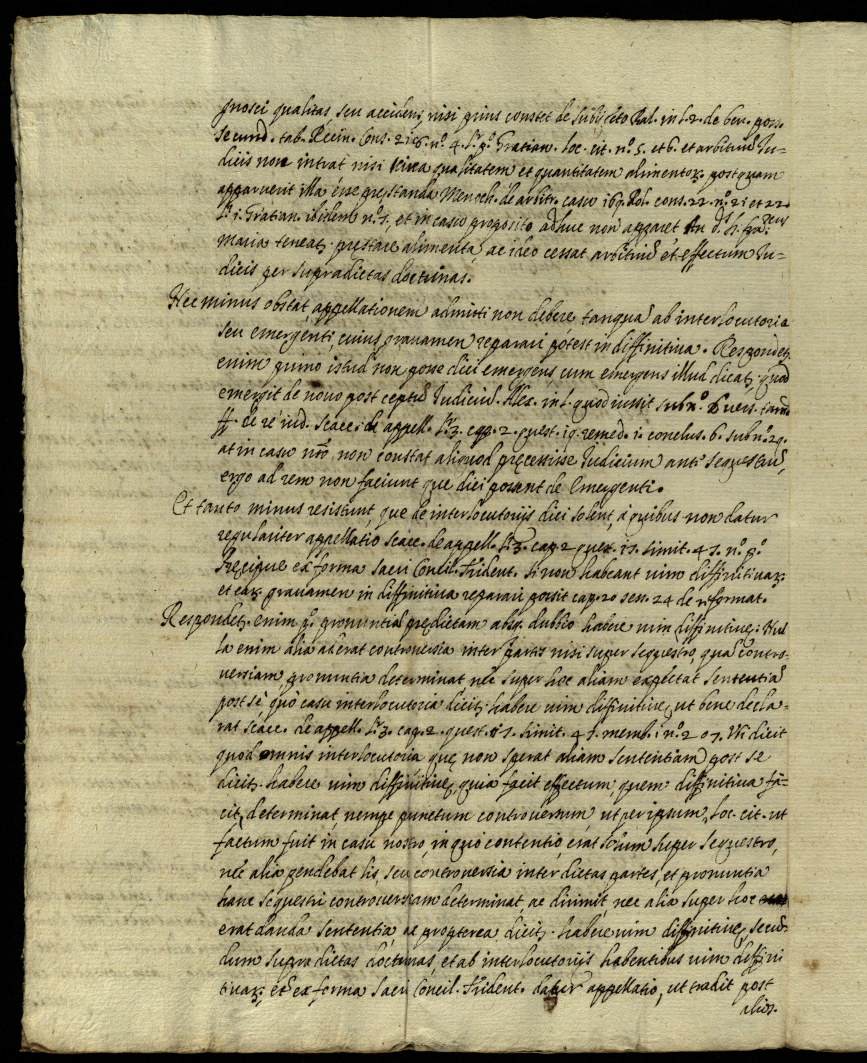 gnosci qualitas, seu accidens, nisi prius constet de subiecto Bal. in l. 2. de ben. poss.
secund. tab. Decin. Cons. 218. nº. 4. Gratian. loc. cit. nº. 5. et 6. et arbitriũ Iu=
dicis non intrat nisi circa qualitatem et quantitatem alimentoꝝ postquam
apparuerit illa esse prestanda Menoch. de arbitr. casu 169. Rol. cons. 22. nº. 21 et 22.
Gratian. ibidem nº. 5, et in casu proposito adhuc non apparet An
Maria teneat prestare alimenta, ac ideo cessat arbitriũ et effectum Iu=
dicis per supradictas doctrinas.
Nec minus obstat, appellationem admitti non debere tanquã ab interlocutoria
seu emergenti, cuius gravamen reparari potest in diffinitiva. Respondetꝫ
enim primo istud non posse dici emergens cum emergens illud dicatꝫ quod
emergit de novo post ceptũ Iudiciũ. Alex. in l. quod iussit sub nº. 6 vers.
ff. de re iud. Scacc. de appell. q. 3. cap. 2. quest. 19. remed. 1. conclus. 6. sub nº. 29.
at in casu nrõ non constat aliquod precessisse Iudicium anti sequestrũ,
ergo ad rem non faciunt que dici possent de Emergenti.
Et tanto minus resistunt, que de interlocutorijs dici solent, à quibus non datur
regulariter appellatio Scacc. de appell. q. 3. cap. 2 quest. 17. limit. 47. nº. pº.
Precipue ex forma Sacri Concil. Trident. si non habeant vim diffinitivaꝝ
et eaꝝ gravamen in diffinitiva reparari possit cap. 20 sess. 24 de reformat.
Respondetꝫ enim pº. pronuntiã predictam absq. dubbio habere vim diffinitivę: Nul=
la enim alia aderat controversia inter partes nisi super sequestro, quã contro=
versiam pronuntia determinat nec super hoc aliam expectat sententiã
post sè quò casu interlocutoria dicitꝫ habere vim diffinitivę, ut bene decla=
rat Scacc. de appell. q. 3. cap. 2. quest. 17. limit. 47. memb. 1 nº. 207. Vbi dicit
quod omnis interlocutoria quę non sperat aliam sententiam post se
dicitꝫ habere vim diffinitivę, quia facit effectum, quem diffinitiva fa=
cit, determinat nempe punctum controversum ut per ipsum, loc. cit. ut
factum fuit in casu nostro, in quo contentio erat solum super sequestro,
nec alia pendebat lis, seu controversia inter dictas partes, et pronuntia
hanc sequestri controversiam determinat ac dirimit, nec alia super hoc
erat danda sententia ac propterea dicitꝫ habere vim diffinitivę, secũ=
dum supradictas doctrinas, et ab interlocutorijs habentibus vim diffini
tivaꝝ, et ex forma Sacri Concil. Trident. datur appellatio, ut tradit post
alios.